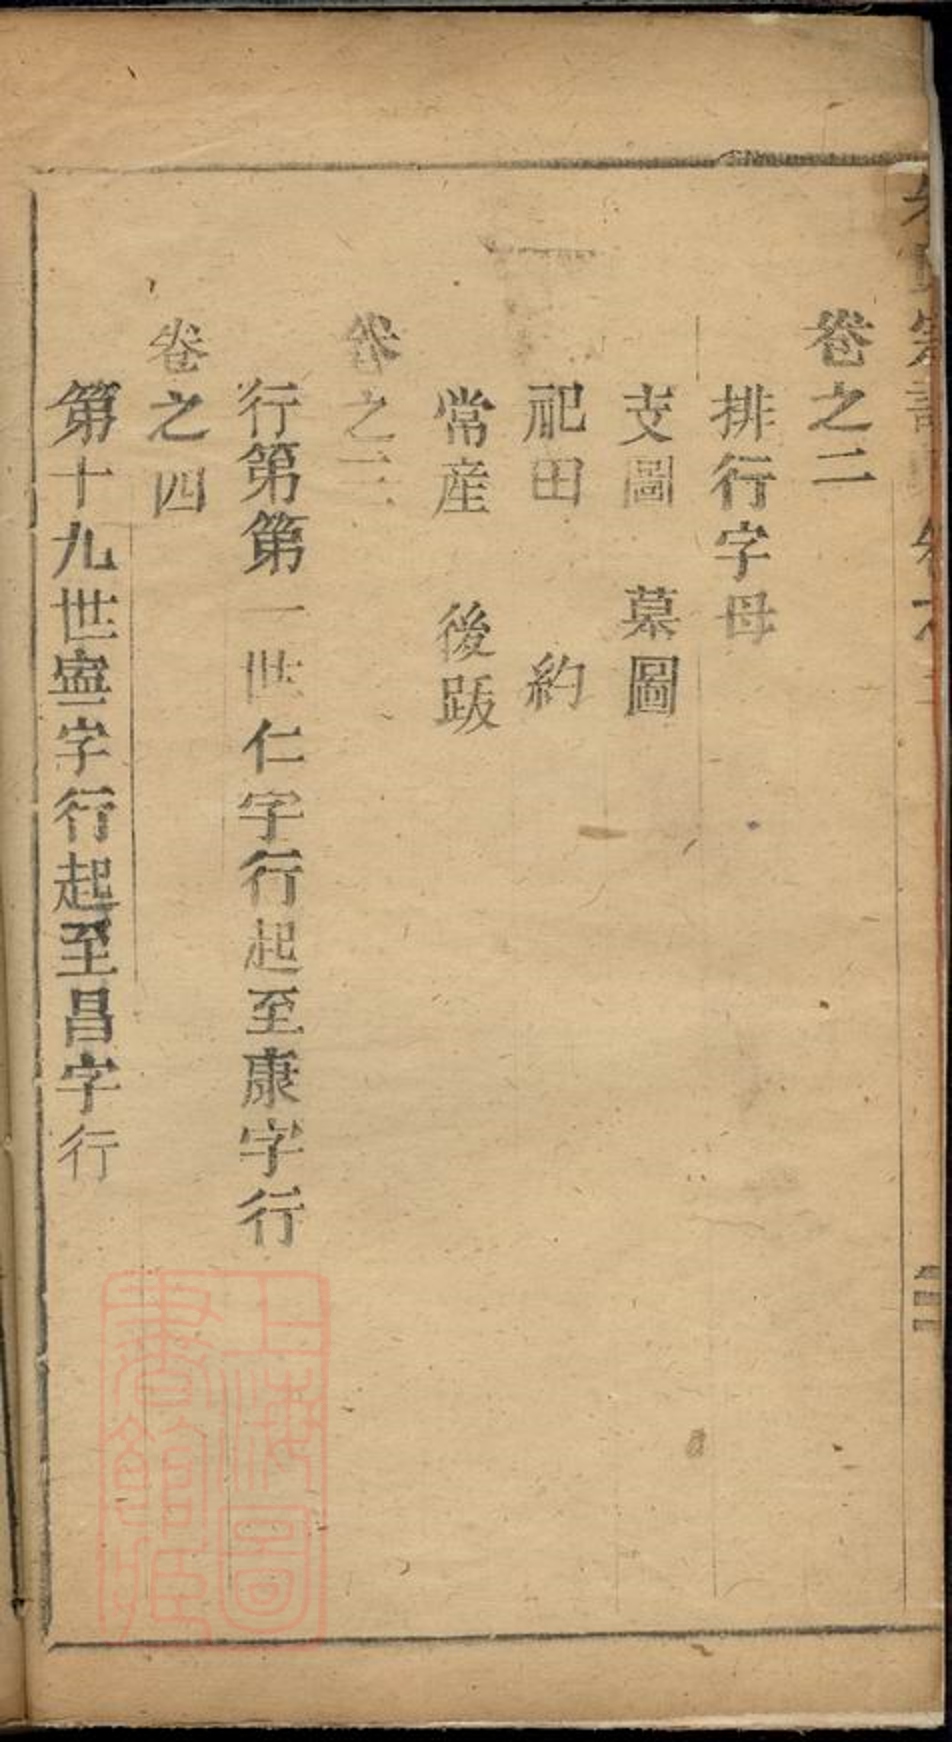 卷之二
排行字母
支圖 墓圖
祀田 約
常産 後跋
卷之三
行第第一世仁字行起至康字行
卷之四
第十九世寧字行起至昌字行
上海圖
書館藏